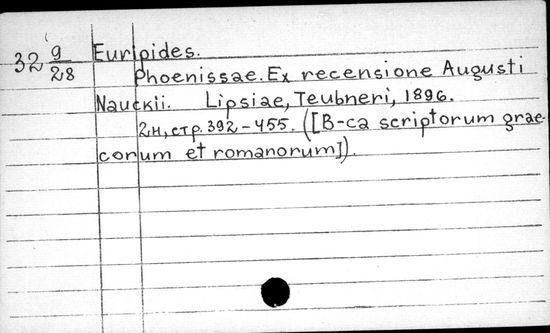 32 9/28 Euripides.
Phoenissae. Ex recensione Augusti
Nauckii. Lipsiae, Teubneri, 1896.
2н, стр. 392-455. ([B-ca scriptorum grae-
corum et romanorum]).